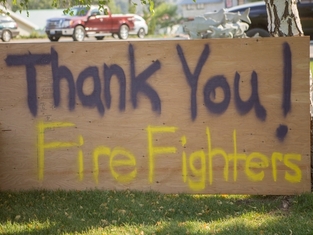 Thank You!
Fire Fighters